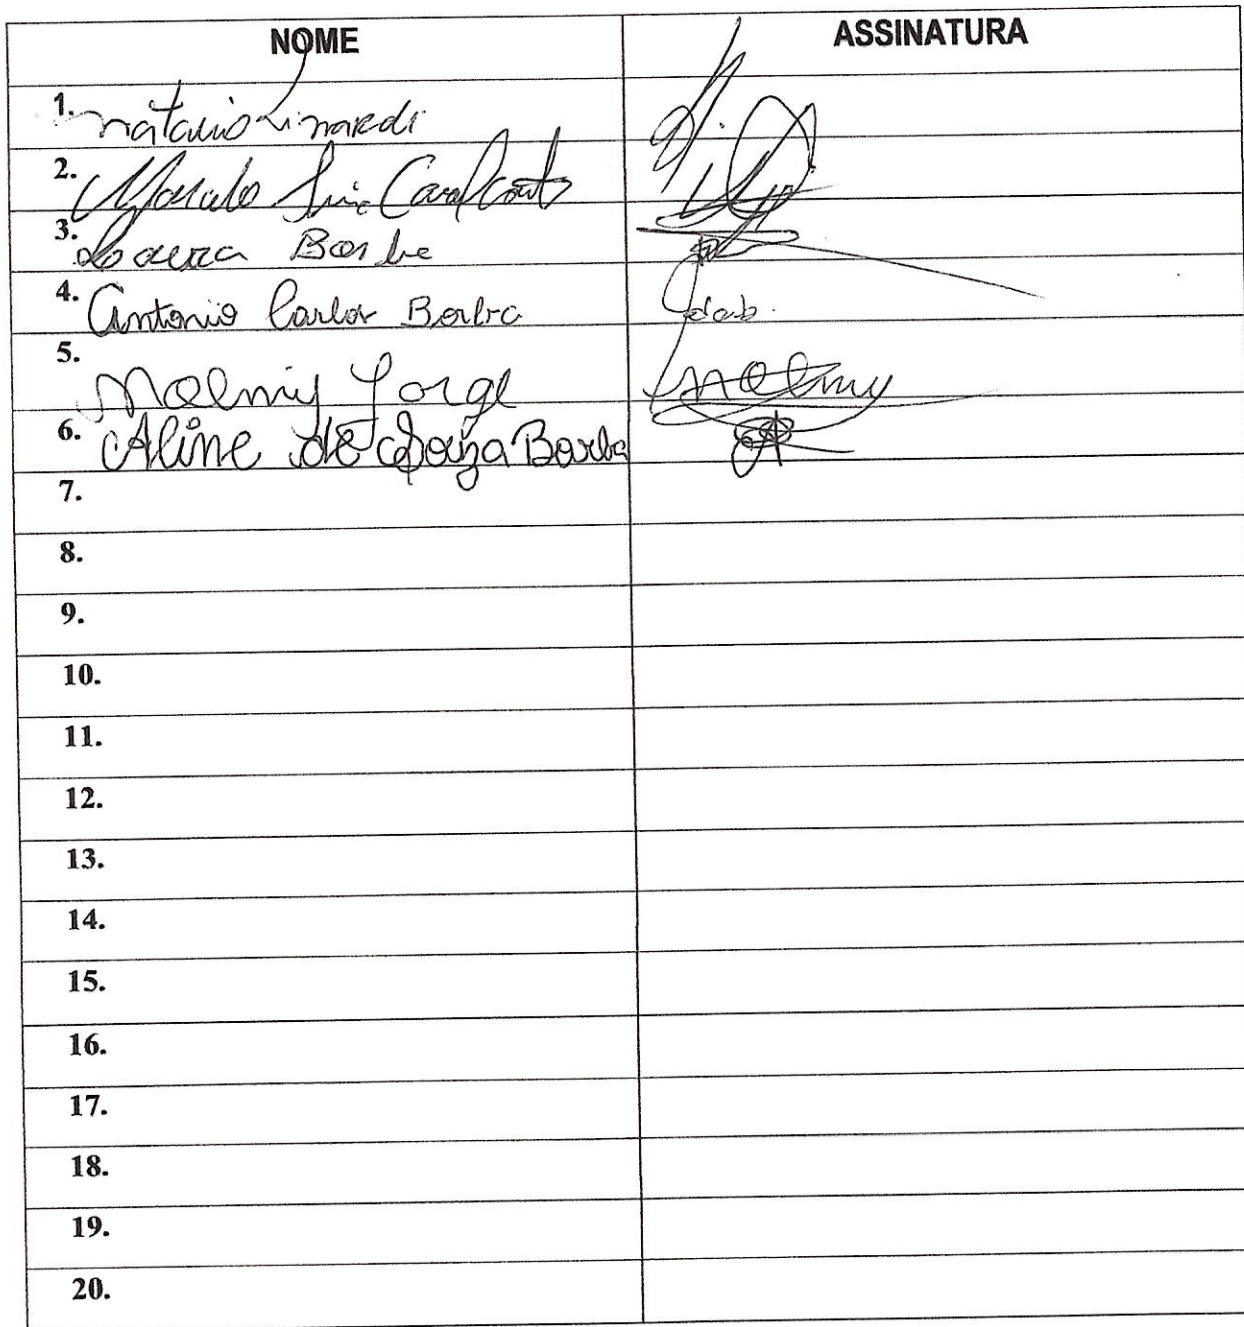 NOME ASSINATURA
1. Natalio Linardi
2. Marcelo Luiz Cavalcanti
3. Laura Borba
4. Antonio Carlos Borba dab.
5. Noemy Jorge Noemy
6. Aline de Souza Borba
7.
8.
9.
10.
11.
12.
13.
14.
15.
16.
17.
18.
19.
20.